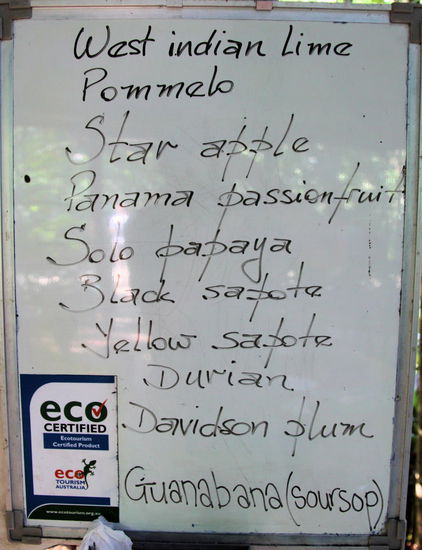 West indian Lime
Pommelo
Star apple
Panama passionfruit
Solo papaya
Black sapote
Yellow sapote
Durian
Davidson plum
Guanabana (soursop)
eco
CERTIFIED
Ecotourism
Certified Product
eco
TOURISM
AUSTRALIA
www.ecotourism.org.au